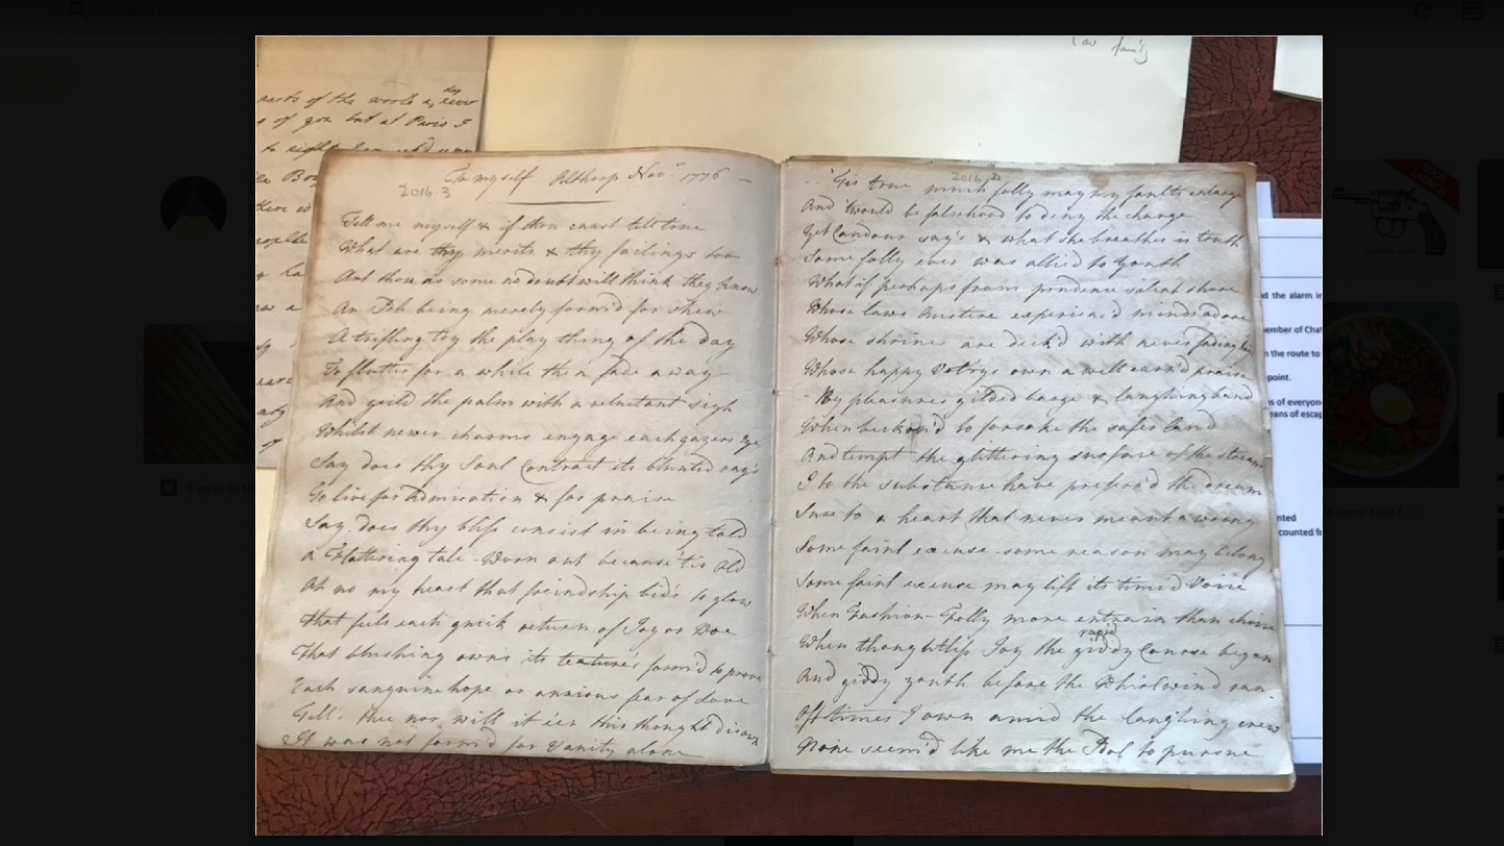 Cav family
parts of the world &
day
s of you but at Paris I
to eight
To myself Althorp Novr 1776 —
2016.3
Tell me myself & if thou canst tell true
What are thy merits & thy failings too
Art thou as some no doubt will think they know
An Deb being merely form'd for shew
A trifling toy the play thing of the day
To flutter for a while then fade away
And yeild the palm with a reluctant sigh
Whilst newer charms engage each gazers eye
Say does thy Soul Contract its blunted ray's
To live for Admiration & for praise
Say does thy bliss consist in being told
a Flattering tale - Worn out because 'tis old
Ah no my heart that freindship bid's to glow
that feels each quick return of Joy or Woe
That blushing owns its texture's form'd to prove
Each sanguine hope or anxious fear of Love
Tell thee nor will it e'er this thought disown
It was not form'd for Vanity alone
2016.3
'Tis true much folly may thy faults enlarge
And 'twould be falsehood to deny the charge
Yet Candour say's & what she breathes is truth
Some folly ever was allied to youth
What if perhaps from prudence
Whose laws Austere experienc'd minds adore
Whose shrines are deck'd with never fading
Whose happy Vot'rys own a well earn'd praise
- By pleasures gilded barge & laughing band
When beckon'd to forsake the safer land
And tempt the glittering surface of the stream
I to the substance have prefer'd the dream
Sure to a heart that never meant a wrong
Some faint excuse - some reason may belong
Some faint excuse may lift its timid Voice
When Fashion - Folly more entrain than choice
rapid
When thoughtless Joy the giddy Course began
And giddy youth before the Whirlwind ran.
Oft times I own amid the laughing crew
None seem'd like me the Bol to pursue
d the alarm in
ember of Cha
n the route to
point.
s of everyon
eans of escap
nted
counted fo